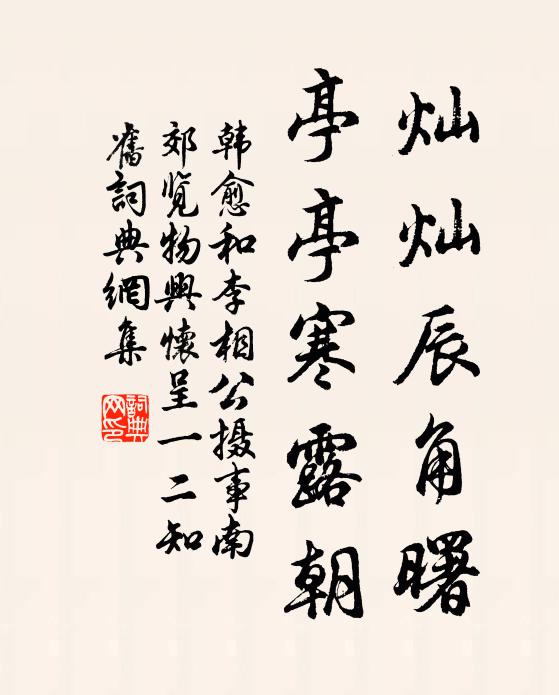 灿灿辰角曙
亭亭寒露朝
韩愈和李相公摄事南
郊览物興懷呈一二知
舊詞典網集
詞典
网印